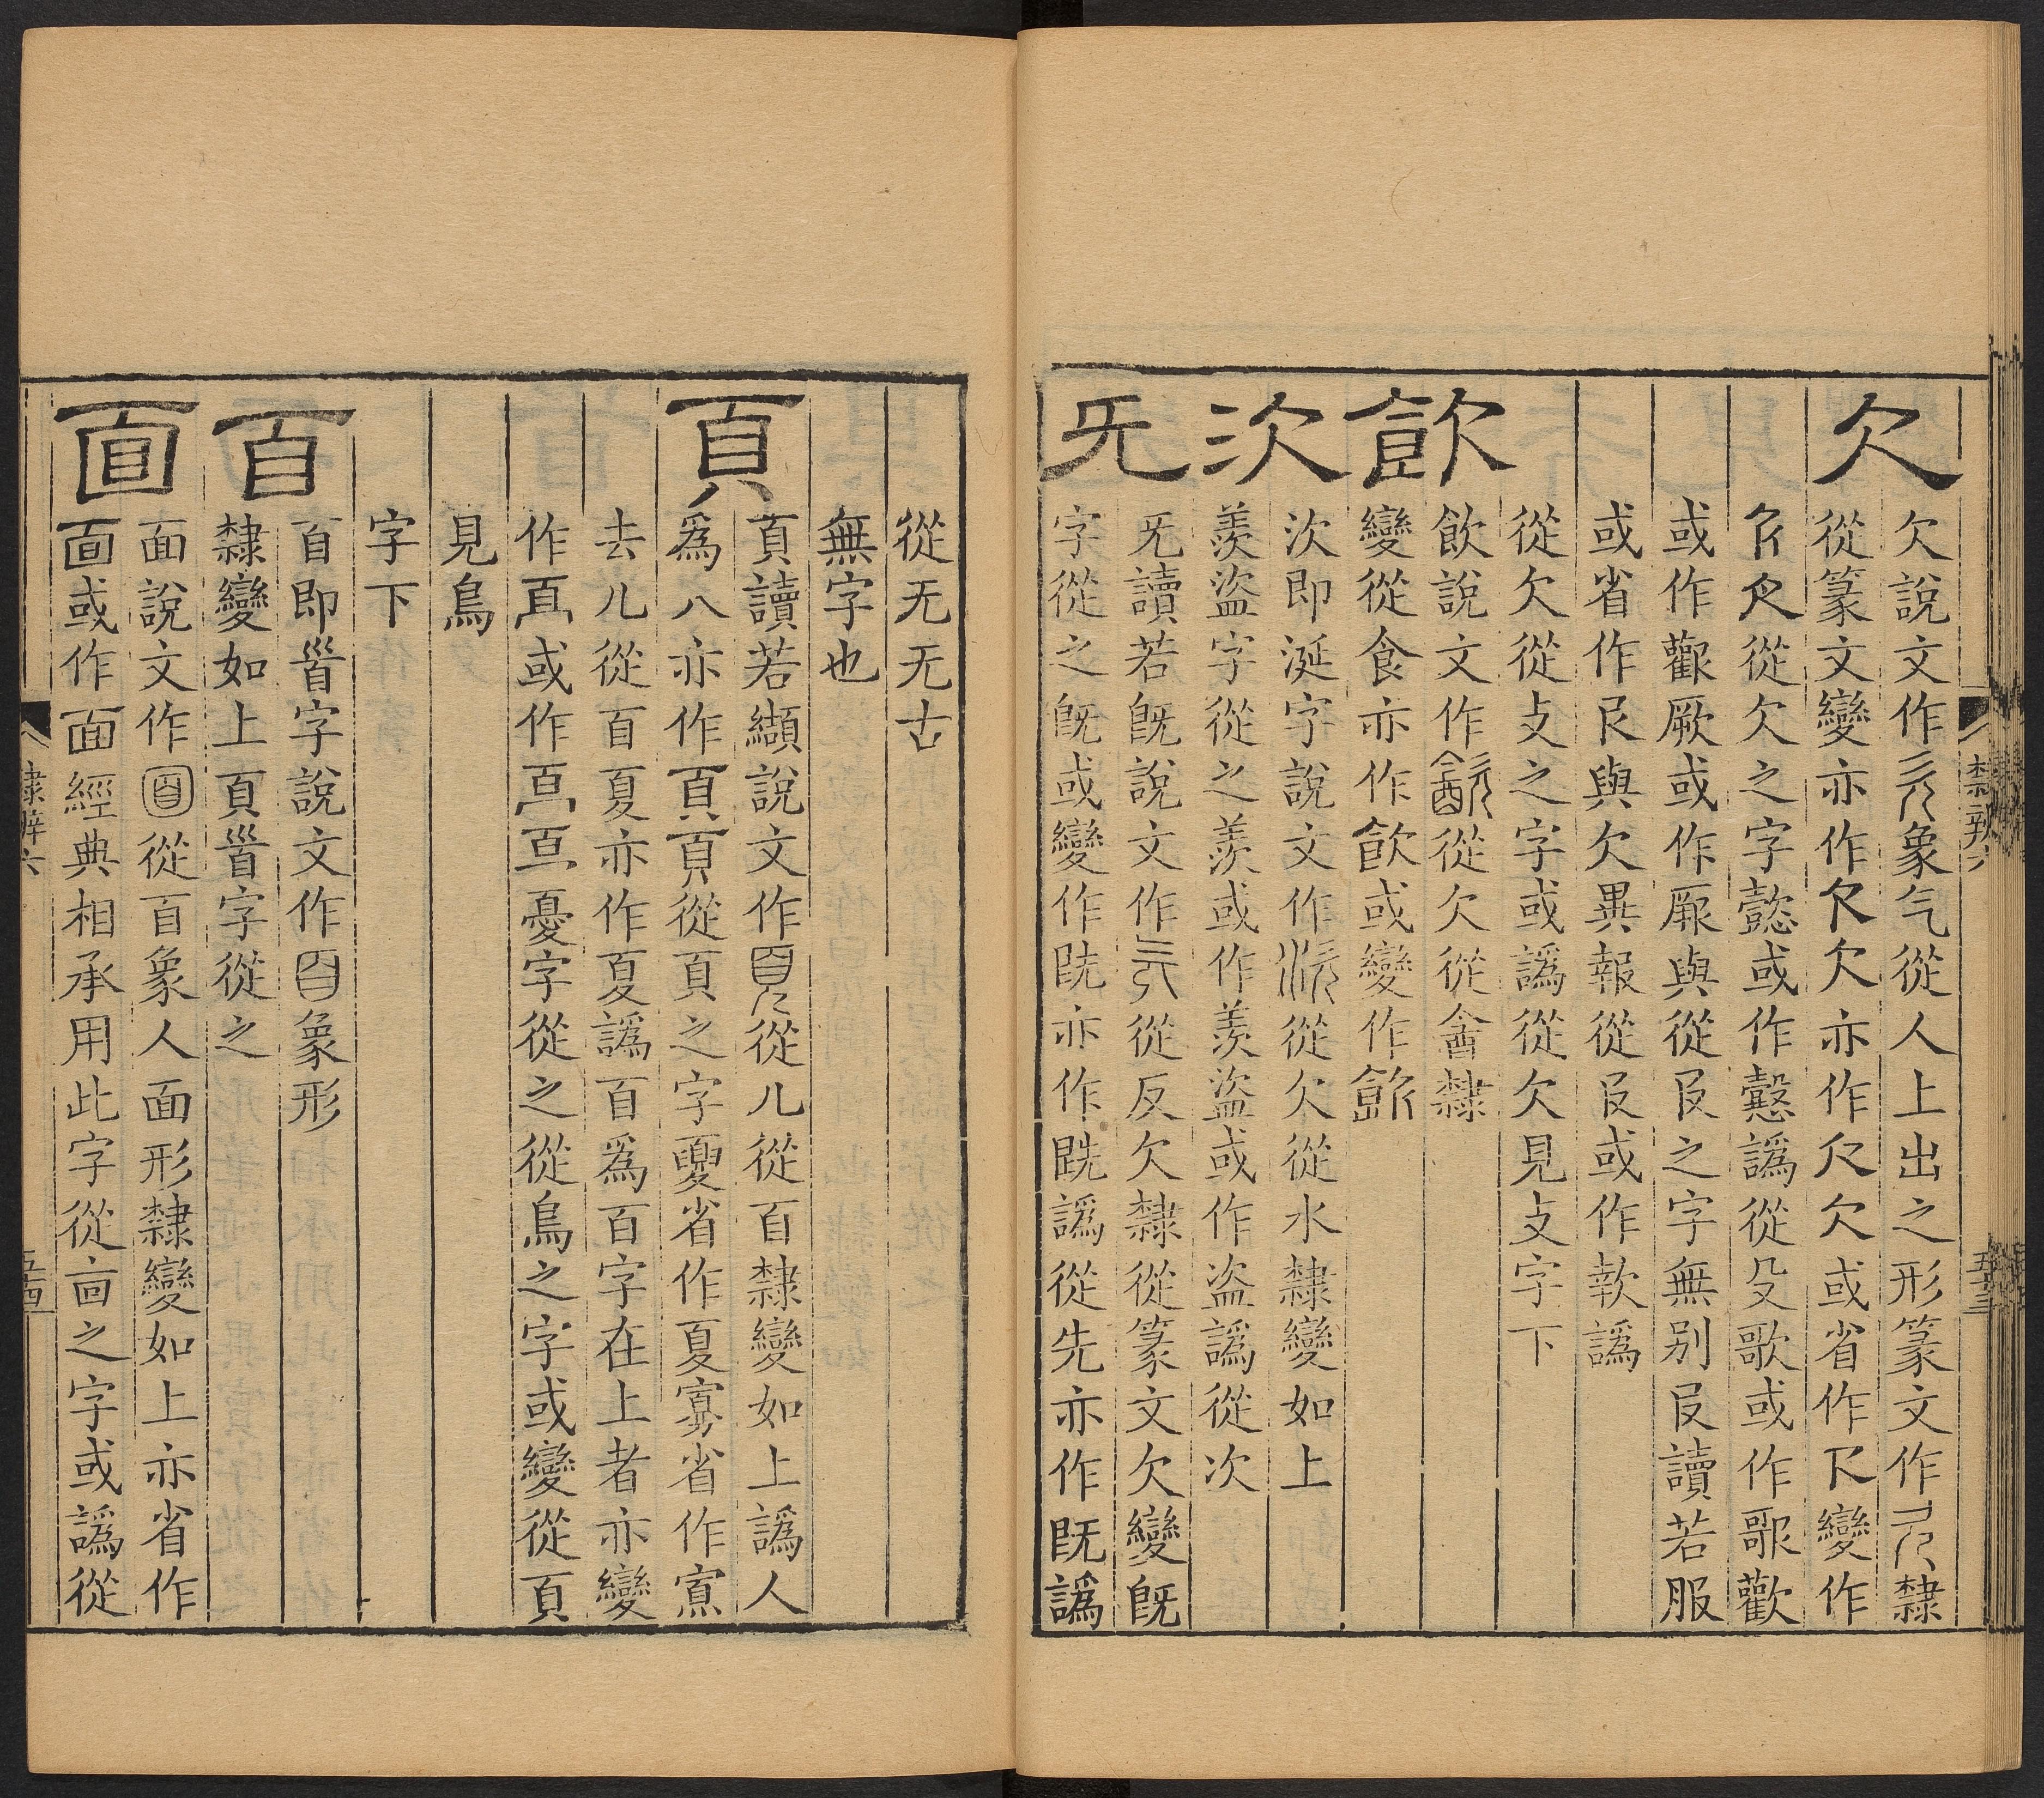 欠
欠說文作象气從人上出之形篆文作隸
從篆文變亦作欠亦作欠或省作變作
從欠之字懿或作懿譌從殳歌或作歌歡
或作歡厥或作厥與從𠬝之字無別𠬝讀若服
或省作㫐與欠異報從𠬝或作軟譌
從欠從攴之字或譌從欠見攴字下
飮
飲說文作㱃從欠從酓隸
變從食亦作飮或變作
㳄
次即涎字說文作從欠從水隸變如上
羨盜字從之羨或作羨盜或作盗譌從次
旡
旡讀若旣說文作從反欠隸從篆文欠變旣
字從之旣或變作亦作譌從先亦作旣譌
隸辨六
五十三
從无无古
無字也
頁
頁讀若纈說文作從儿從𦣻隸變如上譌人
爲八亦作頁頁從頁之字夓省作夏寡省作
去儿從𦣻夏亦作夏譌𦣻爲百字在上者亦變
作或作憂字從之從鳥之字或變從頁
見鳥
字下
𦣻
𦣻即𩠐字說文作象形
隸變如上頁𩠐字從之
面
面說文作從𦣻象人面形隸變如上亦省作
面或作面經典相承用此字從靣之字或譌從
隸辨六
五十四